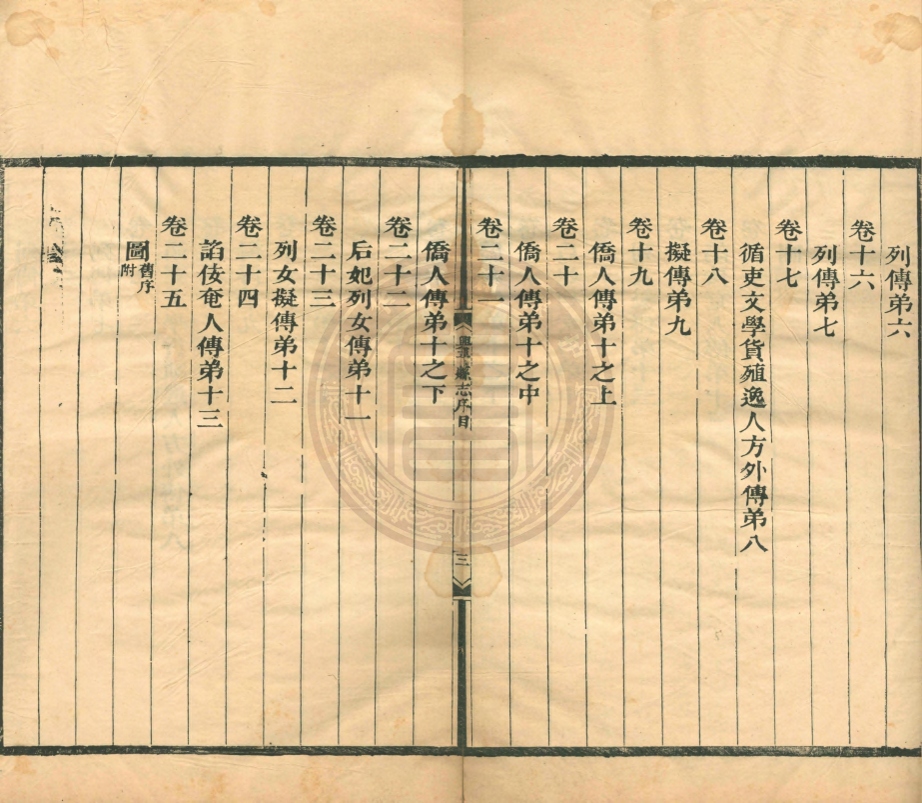 列傳弟六
卷十六
列傳弟七
卷十七
循吏文學貨殖逸人方外傳弟八
卷十八
擬傳弟九
卷十九
僑人傳弟十之上
卷二十
僑人傳弟十之中
卷二十一
縣志序目
三
僑人傳弟十之下
卷二十二
后妃列女傳弟十一
卷二十三
列女擬傳弟十二
卷二十四
諂伎奄人傳弟十三
卷二十五
圖舊序附